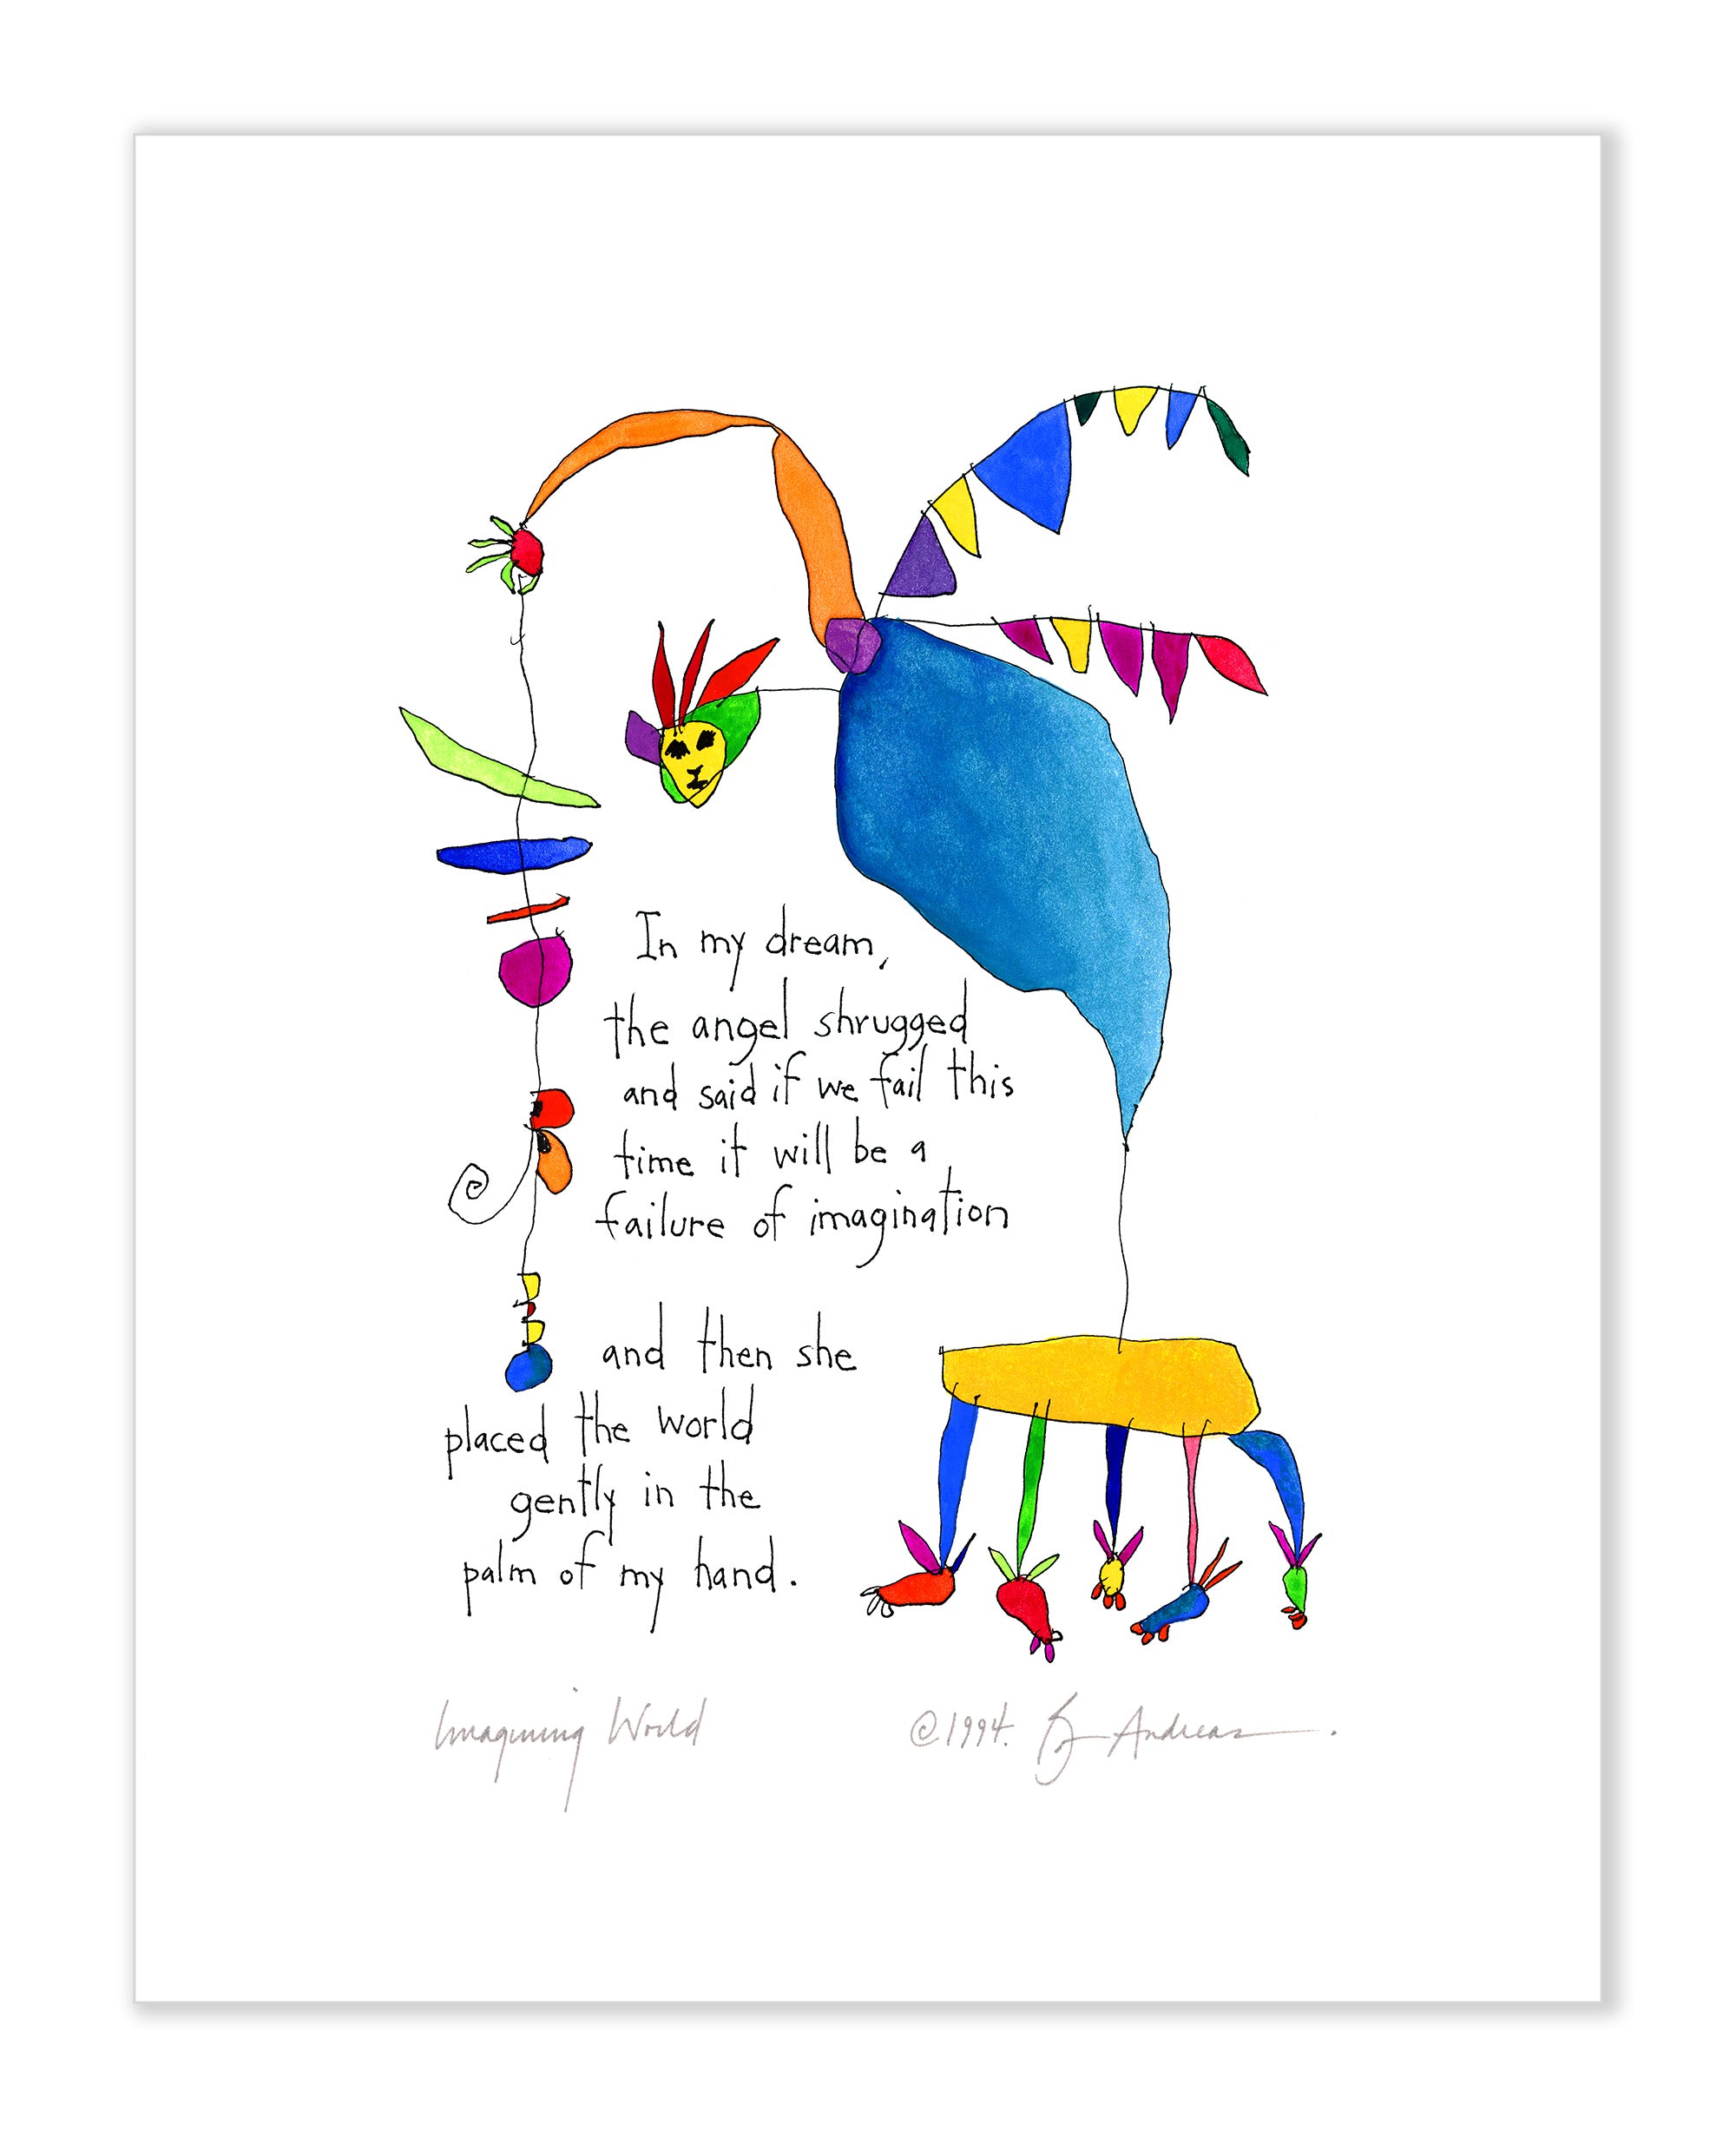 In my dream,
the angel shrugged
and said if we fail this
time it will be a
failure of imagination
and then she
placed the world
gently in the
palm of my hand.
Imagining World
©1994. Andreas